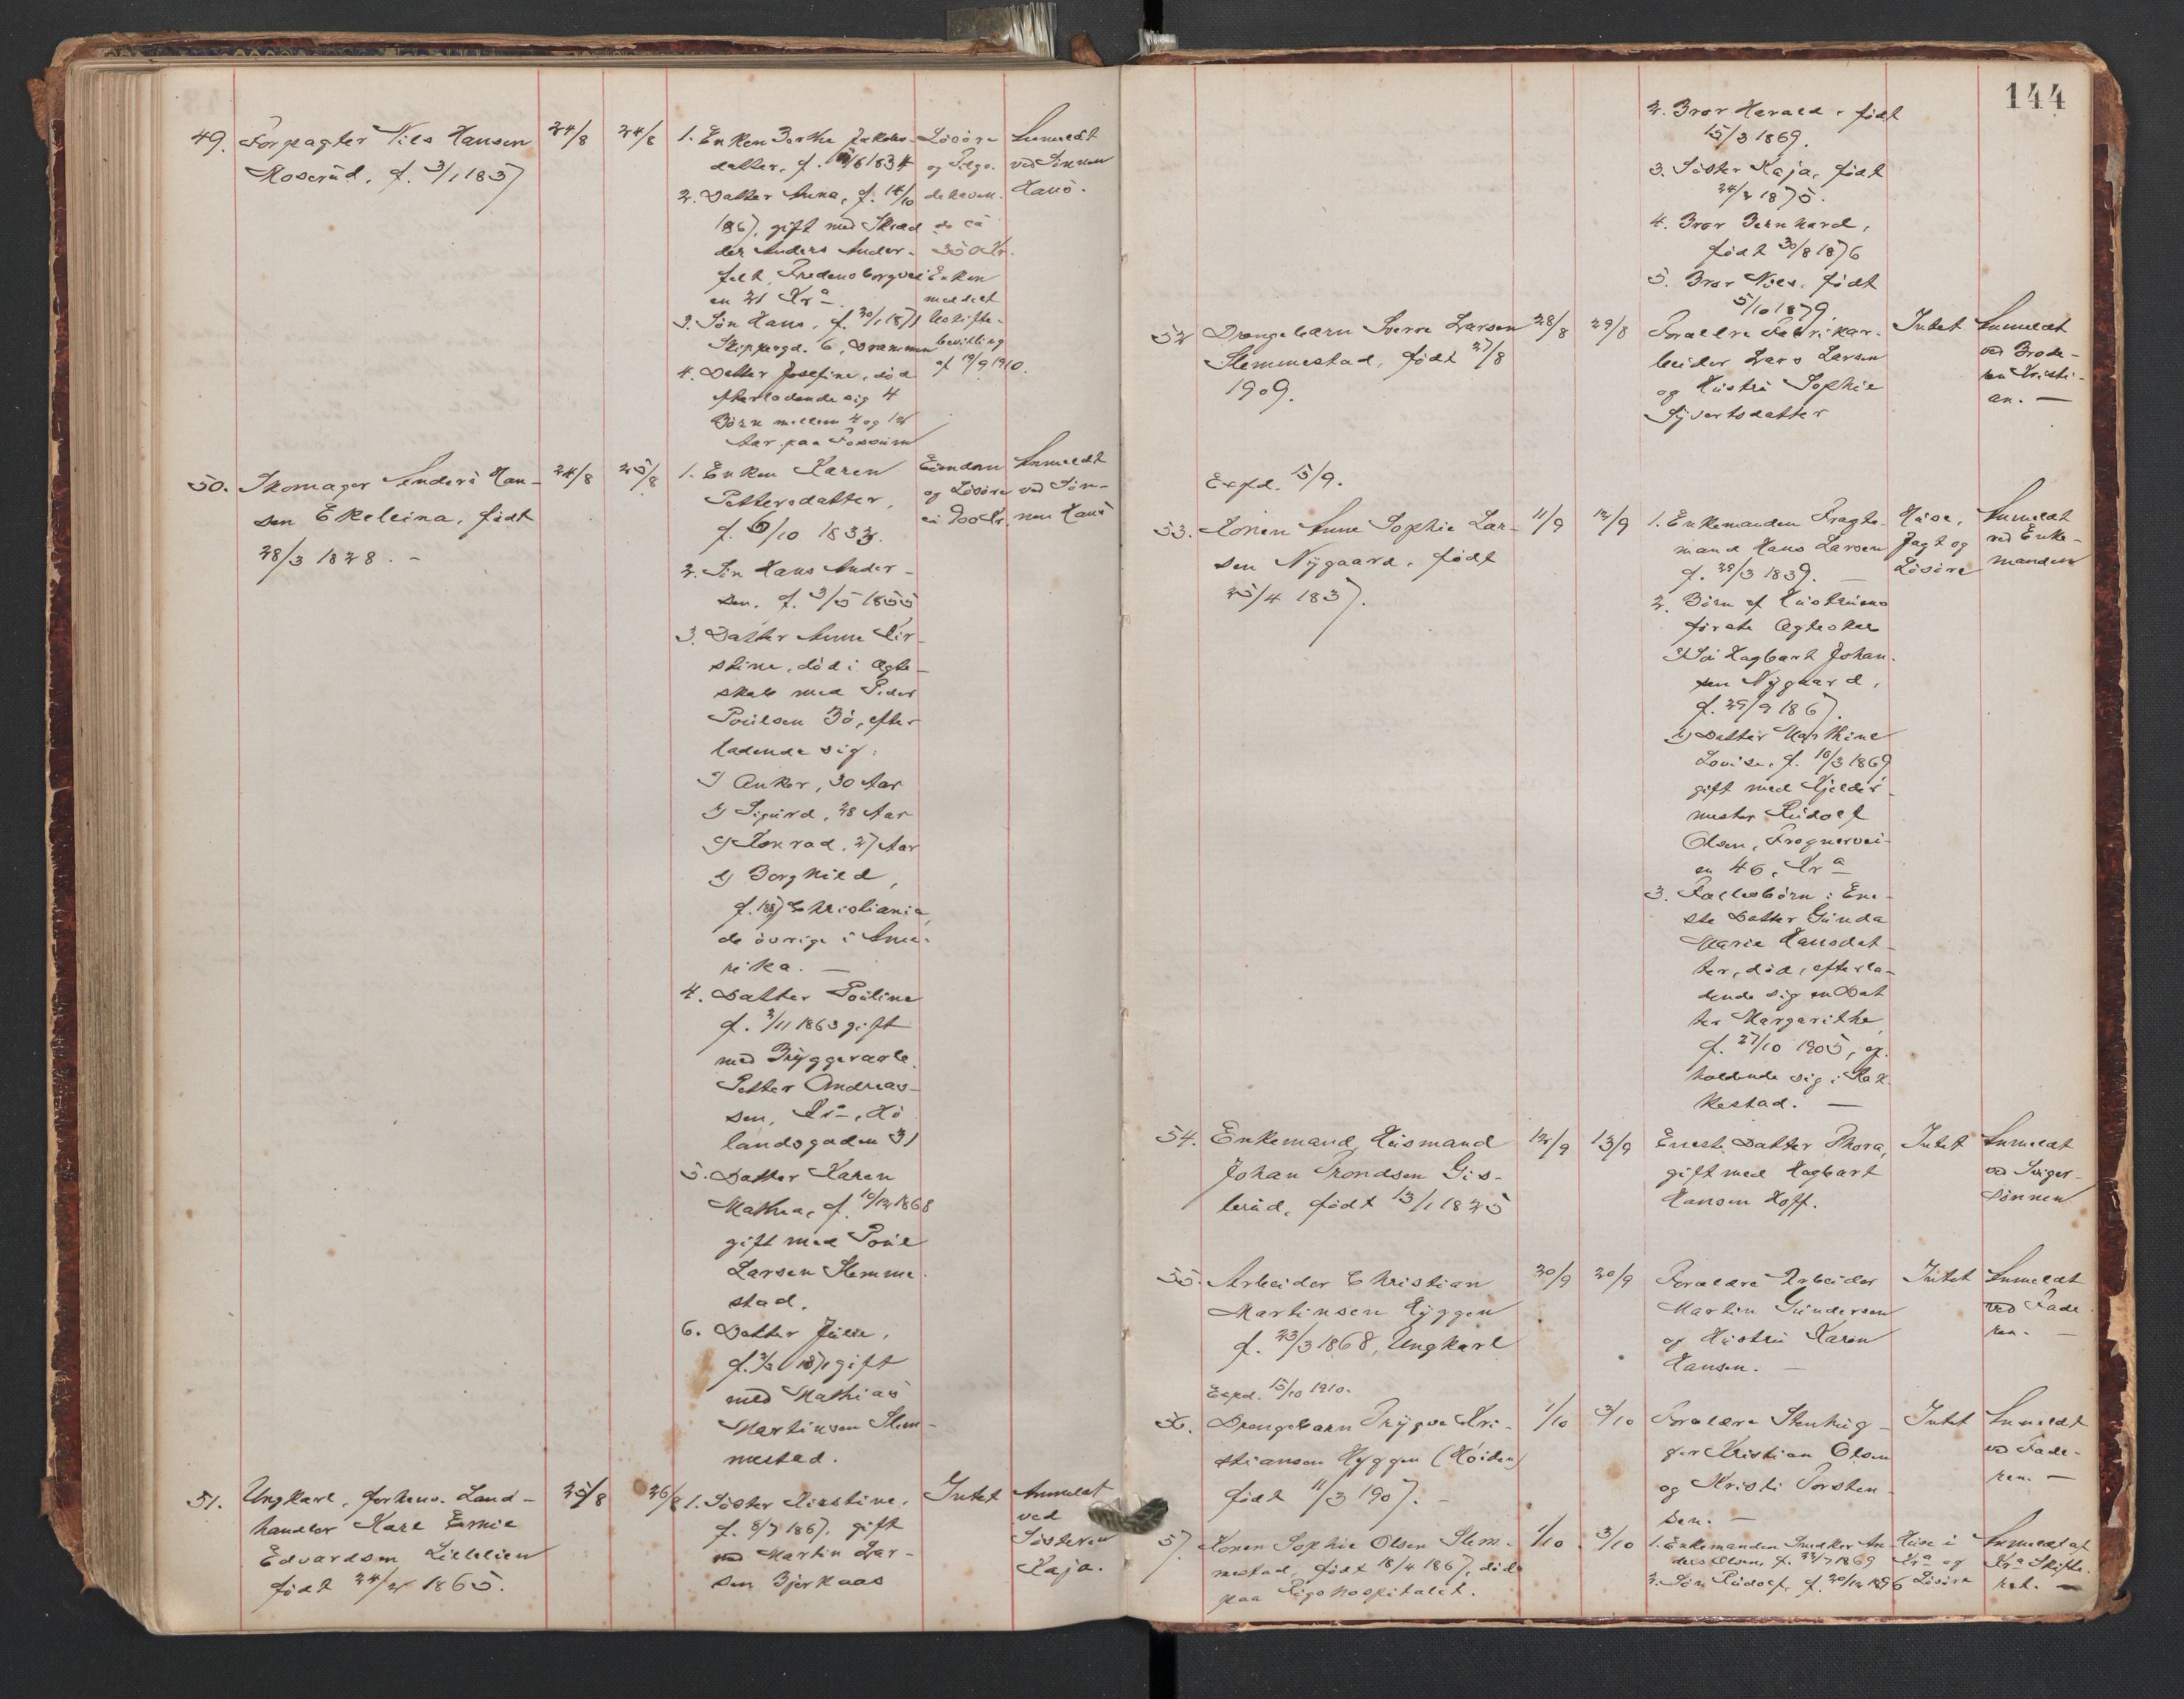 49. Forpagter Nils Hansen
Moserud, f. 3/1 1837
24/8
24/8
1. Enken Berthe Jakobs-
datter, f. /6 1834
2. Datter Anna, f. 14/10
1867, gift med Skræd
der Anders Ander-
Fredensborgvei
en 21 Kra
3. Søn Hans, f. 30/1 1871
Skippergd. 6, Drammen
4. Datter Josefine, død
efterladende sig 4
Börn mellem 4 og 12
Aar paa Fossum
Lösöre
og
ca
350 Kr.
Enken
meddelt
Uskifte-
bevilling
af 12/9 1910.
Anmeldt
ved Sönnen
Hans.
50. Skomager Anders Han-
sen Ekeleina, født
28/3 1828. -
24/8
25/8
1. Enken Karen
Pettersdatter,
f. 6/10 1832.
2. Sön Hans Ander-
sen, f. 3/5 1855
3. Datter Anne Kir-
stine, död i Ægte-
skab med Peder
Poulsen Bö, efter
ladende sig:
a) Anker, 30 Aar
b) Sigurd, 28 Aar
c) Konrad, 27 Aar
d) Borghild,
f. 1887 Christiania,
de övrige i Ame-
rika. -
4. Datter Pouline
f. 2/11 1863 gift
med Bryggerarb.
Petter Andreas-
sen, Kra, Hö
landsgaden 31
5. Datter Karen
Mathea, f. 10/12 1868
gift med Poul
Larsen Slemme-
stad.
6. Datter Julie,
f. 2/2 1871 gift
med Mathias
Martinsen Slem-
mestad.
Eiendom
og Lösöre
ca 900 Kr
Anmeldt
ved Søn-
nen Hans
51. Ungkarl, forhenv. Land-
handler Karl Emil
Edvardsen Lillelien
født 24/2 1865.
25/8
26/8
1. Söster Kirstine,
f. 8/7 1867, gift
med Martin Lar-
sen Bjerkaas
Intet
Anmeldt
ved
Söstren
Kaja.
144
2. Bror Harald, født
15/3 1869.
3. Söster Kaja, født
24/2 1875.
4. Bror Bernhard,
født 30/8 1876
5. Bror Nils, født
5/10 1879.
52 Drengebarn Sverre Larsen
Slemmestad, født 27/8
1909.
28/8
29/8
Forældre Fabrikar-
beider Lars Larsen
og Hustru Sophie
Syvertsdatter
Intet
Anmeldt
ved Brode-
ren Kristi-
an. -
Expd. 15/9.
53. Konen Anne Sophie Lar-
sen Nygaard, født
25/4 1837.
11/9
12/9
1. Enkemanden Fragte-
mand Hans Larsen
f. 28/3 1839. -
2. Börn af Hustruens
første Ægteskab
a) Sön Hagbart Johan-
sen Nygaard,
f. 29/9 1867.
b) Datter Mathine
Lovise, f. 16/3 1869
gift med Kjeldér-
mester Rudolf
Olsen, Frognervei-
en 46, Kra
3. Fællesbörn: Ene-
ste Datter Gunda
Marie Hansdat-
ter, död, efterla-
dende sig en Dat
ter Margarithe,
f. 27/10 1905, op-
holdende sig i Rak-
kestad. -
Huse,
Jagt og
Lösöre
Anmeldt
ved Enke-
manden
54. Enkemand, Husmand
Johan Trondsen Gis-
lerud, født 13/1 1825
12/9
13/9
Eneste Datter Thora,
gift med Hagbart
Hansen Hoff.
Intet
Anmeldt
ved Sviger-
sönnen
55. Arbeider Christian
Martinsen Hyggen
f. 23/3 1868, Ungkarl
20/9
20/9
Forældre Arbeider
Martin Gundersen
og Hustru Karen
Hansen. -
Intet
Anmeldt
ved Fade-
ren. -
Expd. 15/10 1910.
56. Drengebarn Trygve Kri-
stiansen Hyggen (Höiden)
født 11/3 1907. -
1/10
3/10
Forældre Stenhug-
ger Kristian Olsen
og Kristi Torsten-
sen. -
Intet
Anmeldt
ved Fade-
ren. -
57. Konen Sophie Olsen Slem-
mestad, født 18/4 1867, död
paa Rigshospitalet.
1/10
3/10
1. Enkemanden Snedker An-
ders Olsen, f. 22/7 1869
2. Sön Rudolf, f. 20/12 1896
Huse i
Kra og
Lösöre
Anmeldt af
Kra Skifte-
ret. -